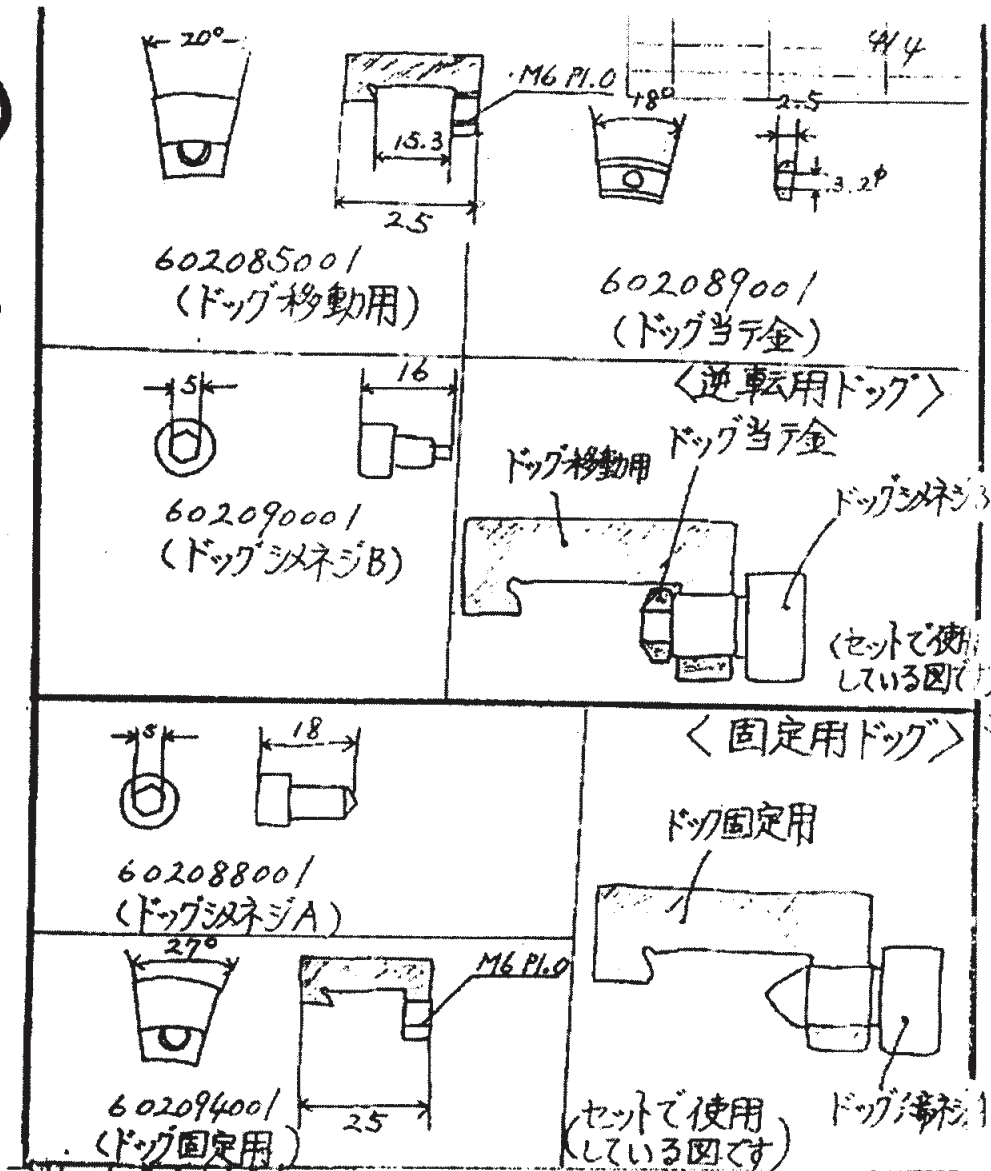 20°
M6 P1.0
15.3
25
602085001
(ドッグ移動用)
4/4
18°
2.5
3.2φ
602089001
(ドッグ当テ金)
5
16
602090001
(ドッグシメネジB)
<逆転用ドッグ>
ドッグ当テ金
ドッグ移動用
ドッグシメネジB
(セットで使用
している図です
5
18
602088001
(ドッグシメネジA)
27°
M6 P1.0
25
602094001
(ドッグ固定用)
<固定用ドッグ>
ドック固定用
ドッグ締ネジA
(セットで使用
している図です)